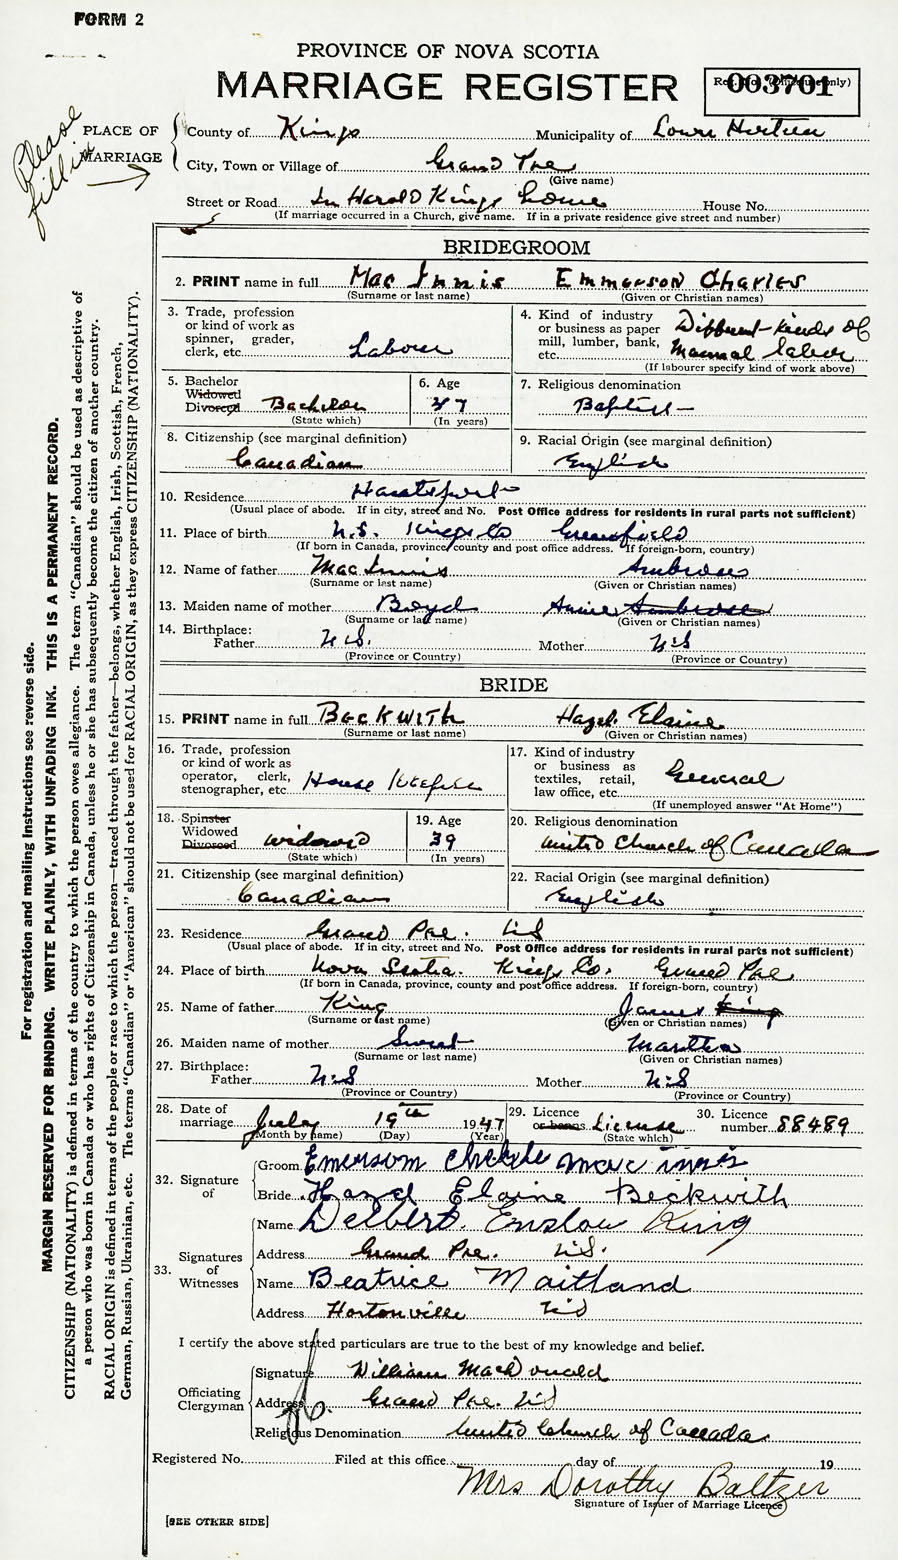 FORM 2
PROVINCE OF NOVA SCOTIA
MARRIAGE REGISTER
Reg. No. (Office use only)
003701
Please
fill in
PLACE OF
MARRIAGE
County of Kings Municipality of Lower Horton
City, Town or Village of Grand Pre
(Give name)
Street or Road In Harold Kings home House No.
(If marriage occurred in a Church, give name. If in a private residence give street and number)
BRIDEGROOM
2. PRINT name in full Mac Innis Emmerson Charles
(Surname or last name) (Given or Christian names)
3. Trade, profession or kind of work as spinner, grader, clerk, etc. Labour
4. Kind of industry or business as paper mill, lumber, bank, etc. Different-kinds of manual labor
(If labourer specify kind of work above)
5. Bachelor Widowed Divorced Bachelor
(State which)
6. Age 37
(In years)
7. Religious denomination
Baptist
8. Citizenship (see marginal definition)
Canadian
9. Racial Origin (see marginal definition)
English
10. Residence
(Usual place of abode. If in city, street and No. Post Office address for residents in rural parts not sufficient)
11. Place of birth N.S. Kings Co Greenfield
(If born in Canada, province, county and post office address. If foreign-born, country)
12. Name of father Mac Innis Ambrose
(Surname or last name) (Given or Christian names)
13. Maiden name of mother Boyd Annie Ambrose
(Surname or last name) (Given or Christian names)
14. Birthplace:
Father N.S. Mother N.S
(Province or Country) (Province or Country)
BRIDE
15. PRINT name in full Beckwith Hazel Elaine
(Surname or last name) (Given or Christian names)
16. Trade, profession or kind of work as operator, clerk, stenographer, etc. House Keeper
17. Kind of industry or business as textiles, retail, law office, etc. General
(If unemployed answer "At Home")
18. Spinster Widowed Divorced widowed
(State which)
19. Age 39
(In years)
20. Religious denomination
United Church of Canada
21. Citizenship (see marginal definition)
Canadian
22. Racial Origin (see marginal definition)
English
23. Residence Grand Pre. N.S
(Usual place of abode. If in city, street and No. Post Office address for residents in rural parts not sufficient)
24. Place of birth Nova Scotia. Kings Co. Grand Pre
(If born in Canada, province, county and post office address. If foreign-born, country)
25. Name of father King James King
(Surname or last name) (Given or Christian names)
26. Maiden name of mother Martha
(Surname or last name) (Given or Christian names)
27. Birthplace:
Father N.S Mother N.S
(Province or Country) (Province or Country)
28. Date of marriage July 19th 1947
(Month by name) (Day) (Year)
29. Licence or banns License
(State which)
30. Licence number 88489
32. Signature of
Groom Emerson Mac innis
Bride Hazel Elaine Beckwith
33. Signatures of Witnesses
Name Delbert Enslow King
Address Grand Pre. N.S.
Name Beatrice Maitland
Address Hortonville N.S
I certify the above stated particulars are true to the best of my knowledge and belief.
Officiating Clergyman
Signature William MacDonald
Address Grand Pre. N.S
Religious Denomination United Church of Canada.
Registered No. Filed at this office day of 19
Mrs Dorothy Baltzer
Signature of Issuer of Marriage Licence
[SEE OTHER SIDE]
For registration and mailing instructions see reverse side.
MARGIN RESERVED FOR BINDING. WRITE PLAINLY, WITH UNFADING INK. THIS IS A PERMANENT RECORD.
CITIZENSHIP (NATIONALITY) is defined in terms of the country to which the person owes allegiance. The term "Canadian" should be used as descriptive of
a person who was born in Canada or who has rights of Citizenship in Canada, unless he or she has subsequently become the citizen of another country.
RACIAL ORIGIN is defined in terms of the people or race to which the person—traced through the father—belongs, whether English, Irish, Scottish, French,
German, Russian, Ukrainian, etc. The terms "Canadian" or "American" should not be used for RACIAL ORIGIN, as they express CITIZENSHIP (NATIONALITY).